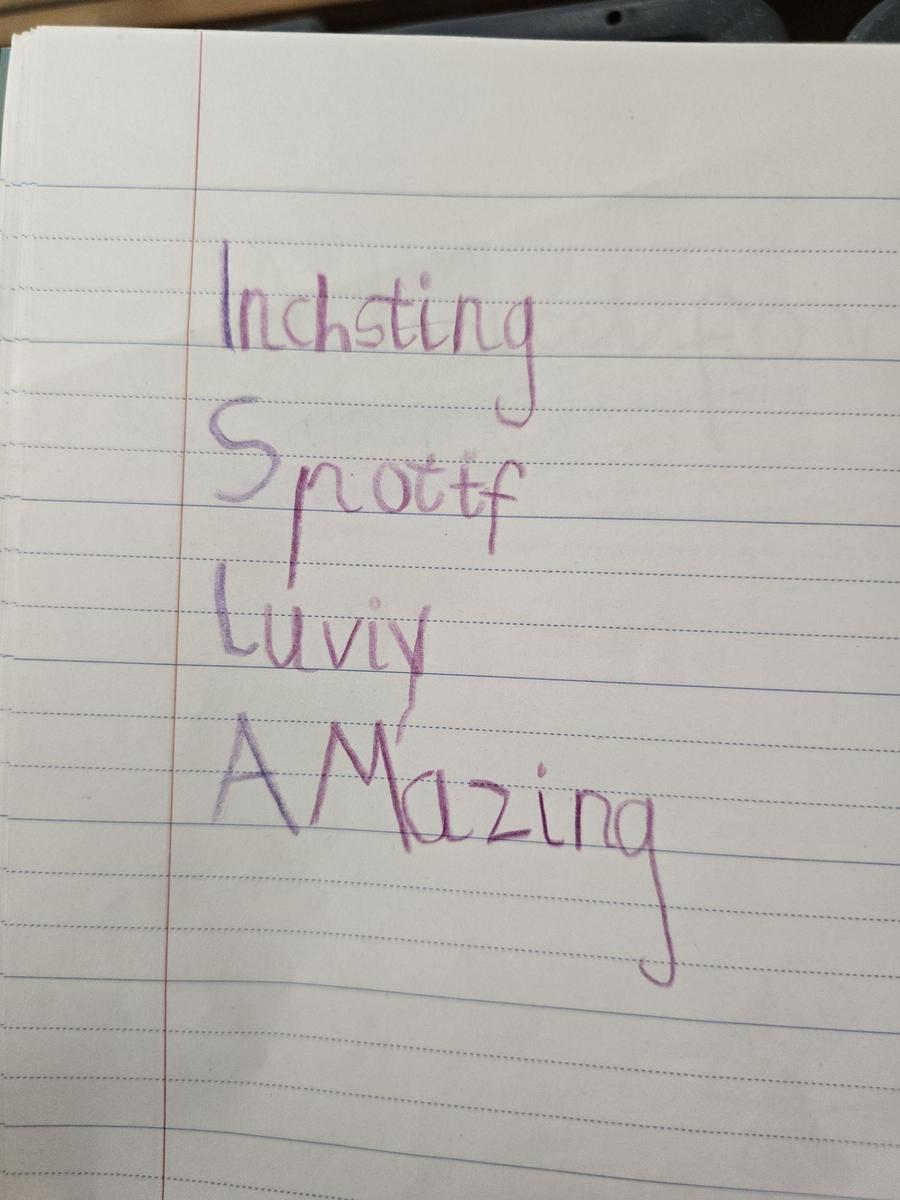 Inchsting
Spottf
Luviy
AMazing